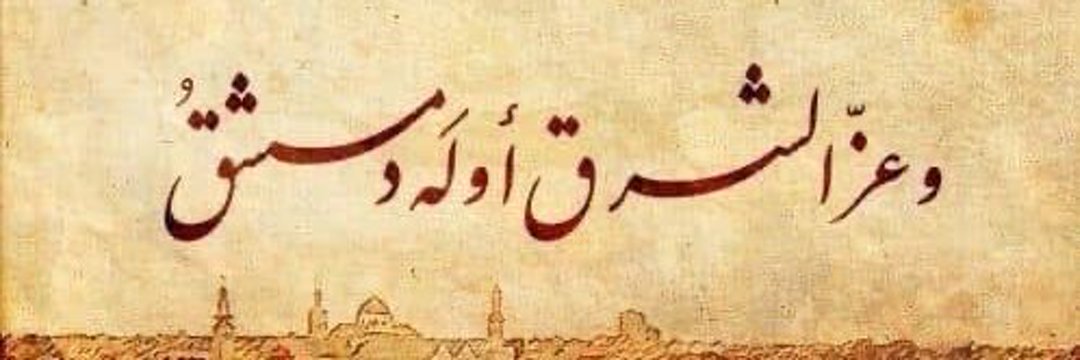 وعزّ الشرق أولَه دمشقُ